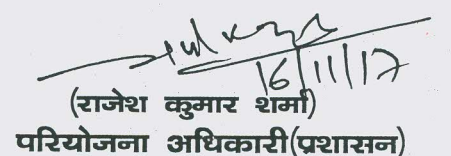 16/11/17
(राजेश कुमार शर्मा)
परियोजना अधिकारी(प्रशासन)